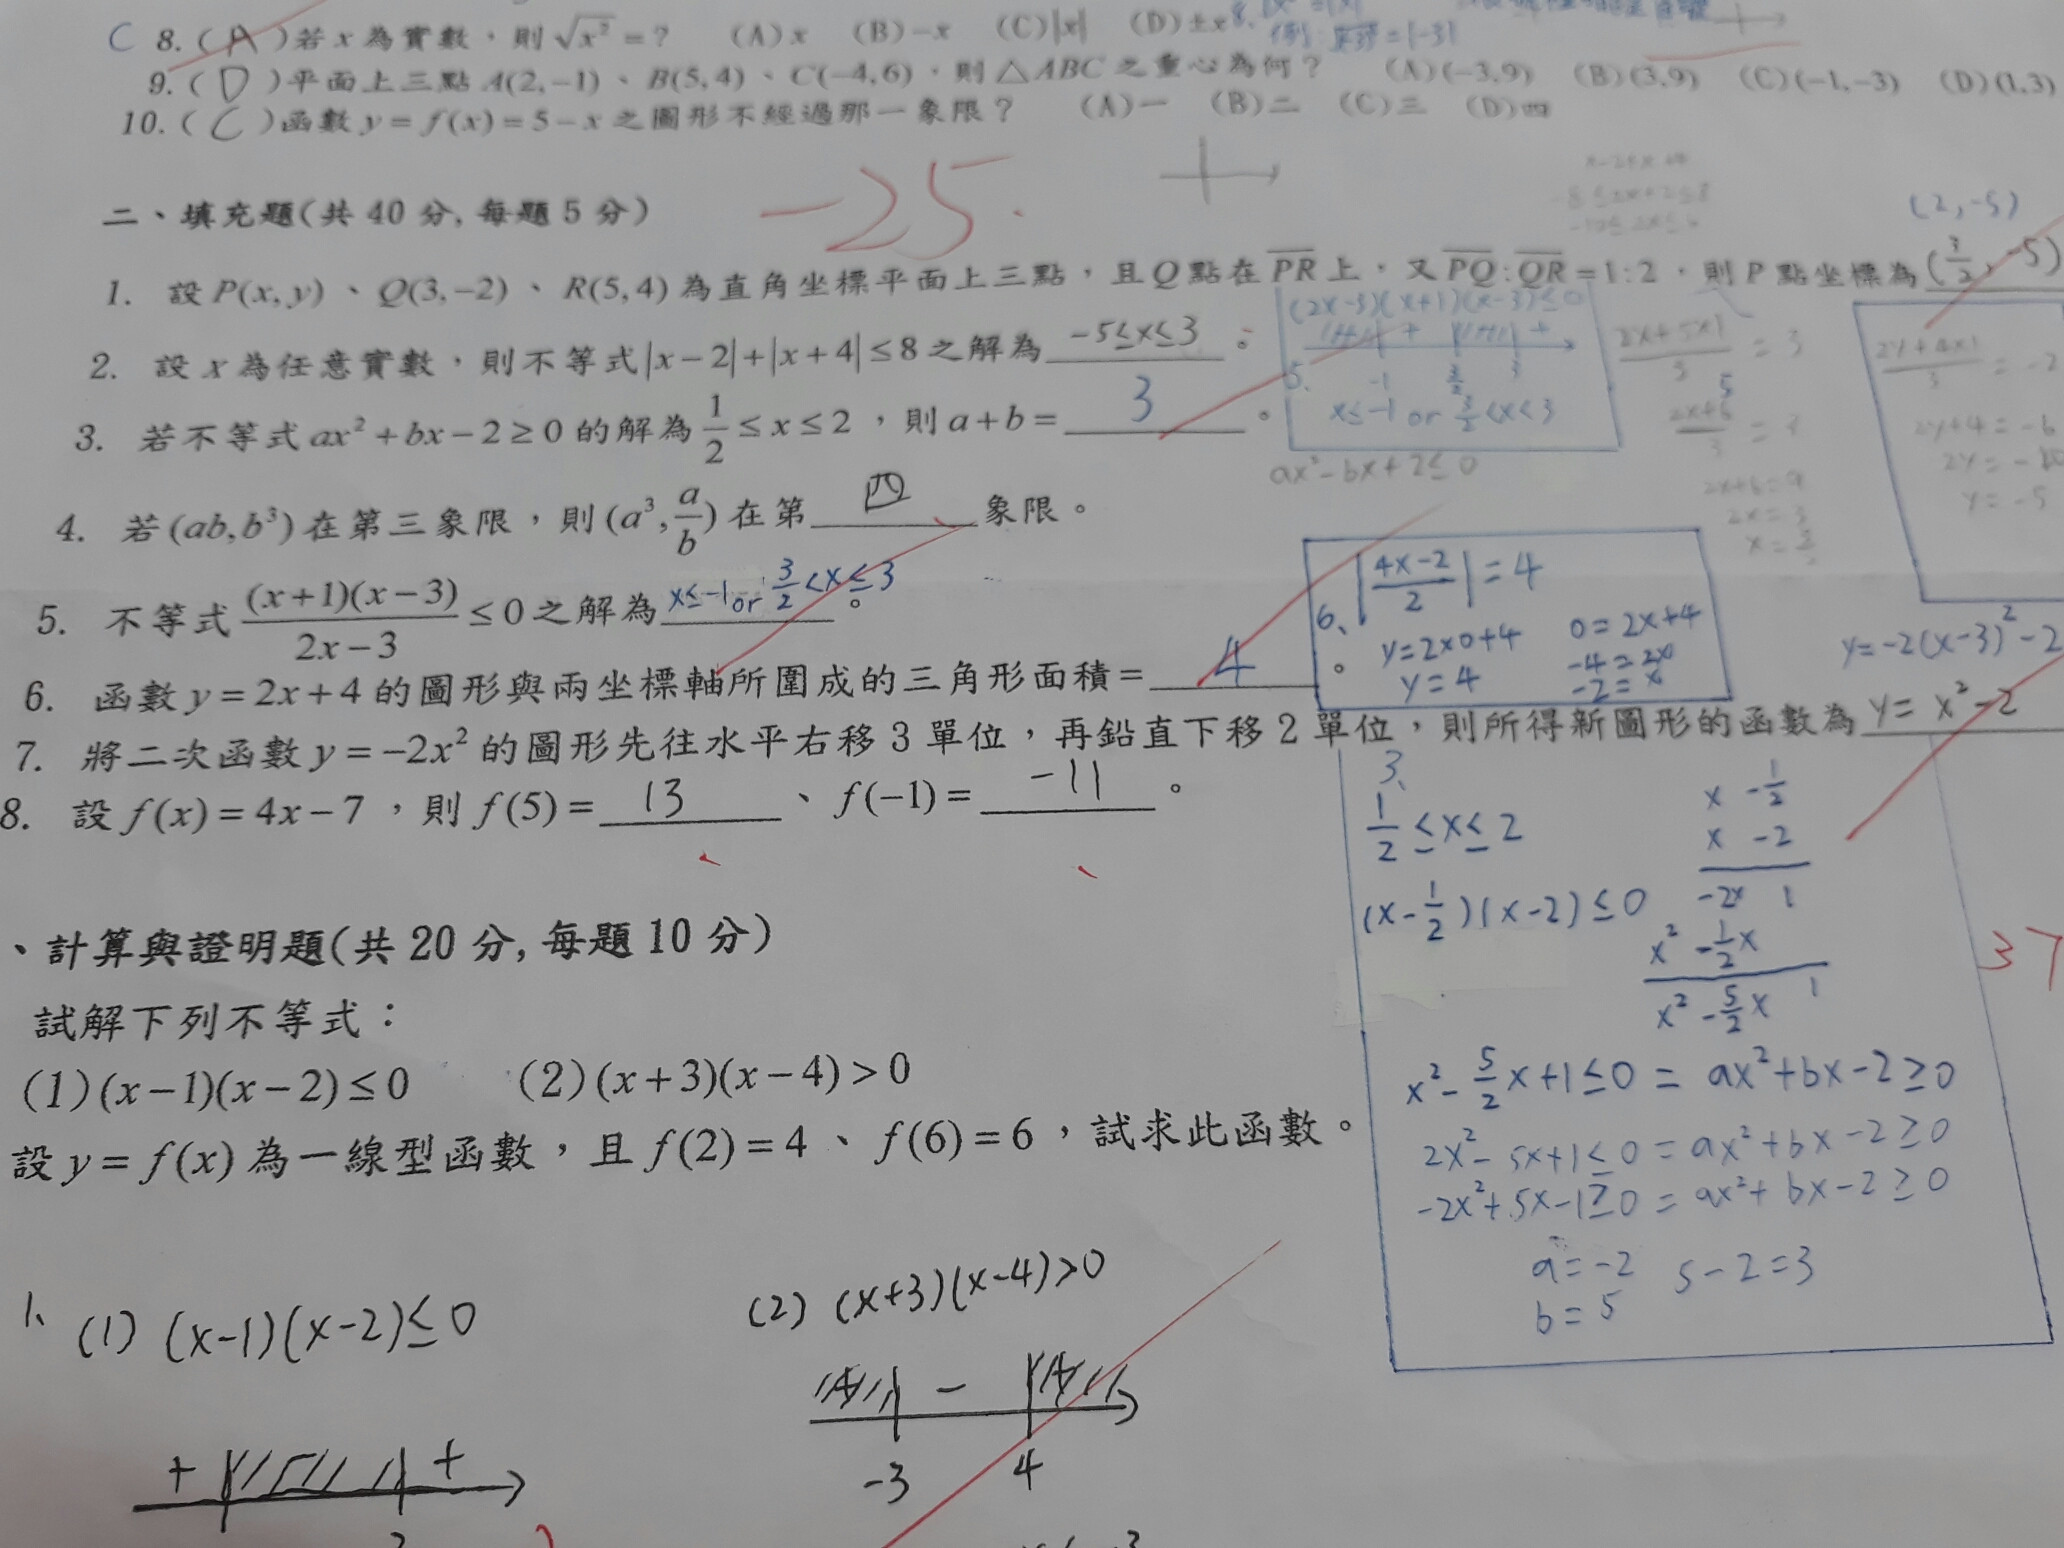 C 8. ( A )若 x 為實數，則 √x² = ? (A) x (B) −x (C)|x| (D) ±x
9. ( D )平面上三點 A(2,−1)、B(5,4)、C(−4,6)，則△ABC 之重心為何？ (A)(−3,9) (B)(3,9) (C)(−1,−3) (D)(1,3)
10. ( C )函數 y = f(x) = 5 − x 之圖形不經過那一象限？ (A)一 (B)二 (C)三 (D)四
二、填充題(共 40 分, 每題 5 分)
-25.
(2,-5)
1. 設 P(x, y)、Q(3,−2)、R(5,4) 為直角坐標平面上三點，且 Q 點在 PR 上，又 PQ:QR = 1:2，則 P 點坐標為 (3/2, -5)
2. 設 x 為任意實數，則不等式 |x−2|+|x+4| ≤ 8 之解為 -5≤x≤3 。
3. 若不等式 ax²+bx−2 ≥ 0 的解為 1/2 ≤ x ≤ 2，則 a+b = 3 。
4. 若 (ab, b³) 在第三象限，則 (a³, a/b) 在第 四 象限。
5. 不等式 (x+1)(x−3)/(2x−3) ≤ 0 之解為 x≤-1 or 3/2<x≤3 。
6. 函數 y = 2x+4 的圖形與兩坐標軸所圍成的三角形面積= 4 。
7. 將二次函數 y = −2x² 的圖形先往水平右移 3 單位，再鉛直下移 2 單位，則所得新圖形的函數為 y= x²-2
8. 設 f(x) = 4x−7，則 f(5) = 13 、f(−1) = -11 。
(2x-3)(x+1)(x-3)≤0
5.
-1 3/2 3
x≤-1 or 3/2<x<3
ax²-bx+2≤0
2x+5x1/3 = 3
2x+6=9
2x=3
2y+4x1/3 = -2
2y+4=-6
y=-5
6、 |4x-2/2| = 4
y=2x0+4 0=2x+4
y=4 -4=2x
-2=x
y=-2(x-3)²-2
3、
1/2 ≤x≤ 2
(x-1/2)(x-2)≤0
x -1/2
x -2
-2x 1
x² -1/2x
x² -5/2x 1
37
x²-5/2x+1≤0 = ax²+bx-2≥0
2x²-5x+1≤0 = ax²+bx-2≥0
-2x²+5x-1≥0 = ax²+bx-2≥0
a=-2 5-2=3
b=5
、計算與證明題(共 20 分, 每題 10 分)
試解下列不等式：
(1)(x−1)(x−2) ≤ 0 (2)(x+3)(x−4) > 0
設 y = f(x) 為一線型函數，且 f(2) = 4、f(6) = 6，試求此函數。
1、 (1) (x-1)(x-2)≤0 (2) (x+3)(x-4)>0
+ +
−
-3 4